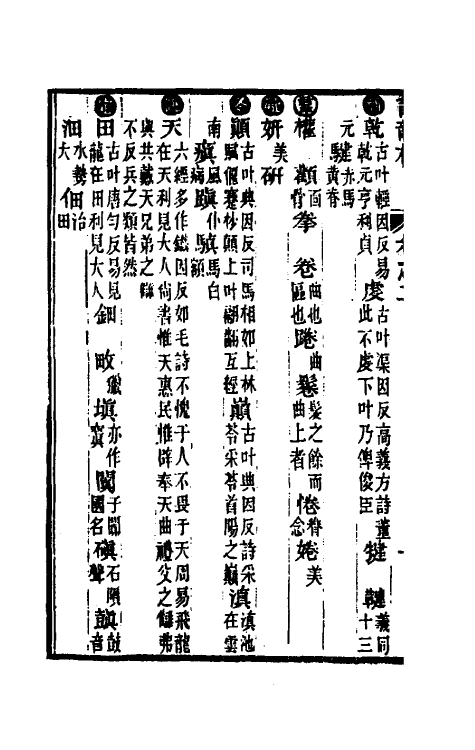 乾 古叶輕因反易乾元亨利貞 虔 古叶渠因反高義方詩董此不虔下叶乃俾俊臣 犍 鞬 義同十三
元 騝 赤馬黃脊
權 顴 面骨 拳 卷 曲也區也 踡 曲 鬈 髮之餘而曲上者 惓 眷念 婘 美
妍 美 研
顚 古叶典因反司馬相如上林賦偃蹇杪顚上叶翩翻互經 巔 古叶典因反詩采苓采苓首陽之巔 滇 滇池在雲
南 瘨 風病 蹎 仆 驥 馬白額
天 六經多作鐵因反如毛詩不愧于人不畏于天周易飛龍在天利見大人尚書惟天惠民惟辟奉天曲禮父之讎弗
與共戴天兄弟之讎不反兵之類皆然
田 古叶唐勻反易見龍在田利見大人 鈿 畋 獵 塡 亦作窴 闐 于闐國名 磌 石隕聲 鼘 鼓音
沺 水勢大 佃 治田